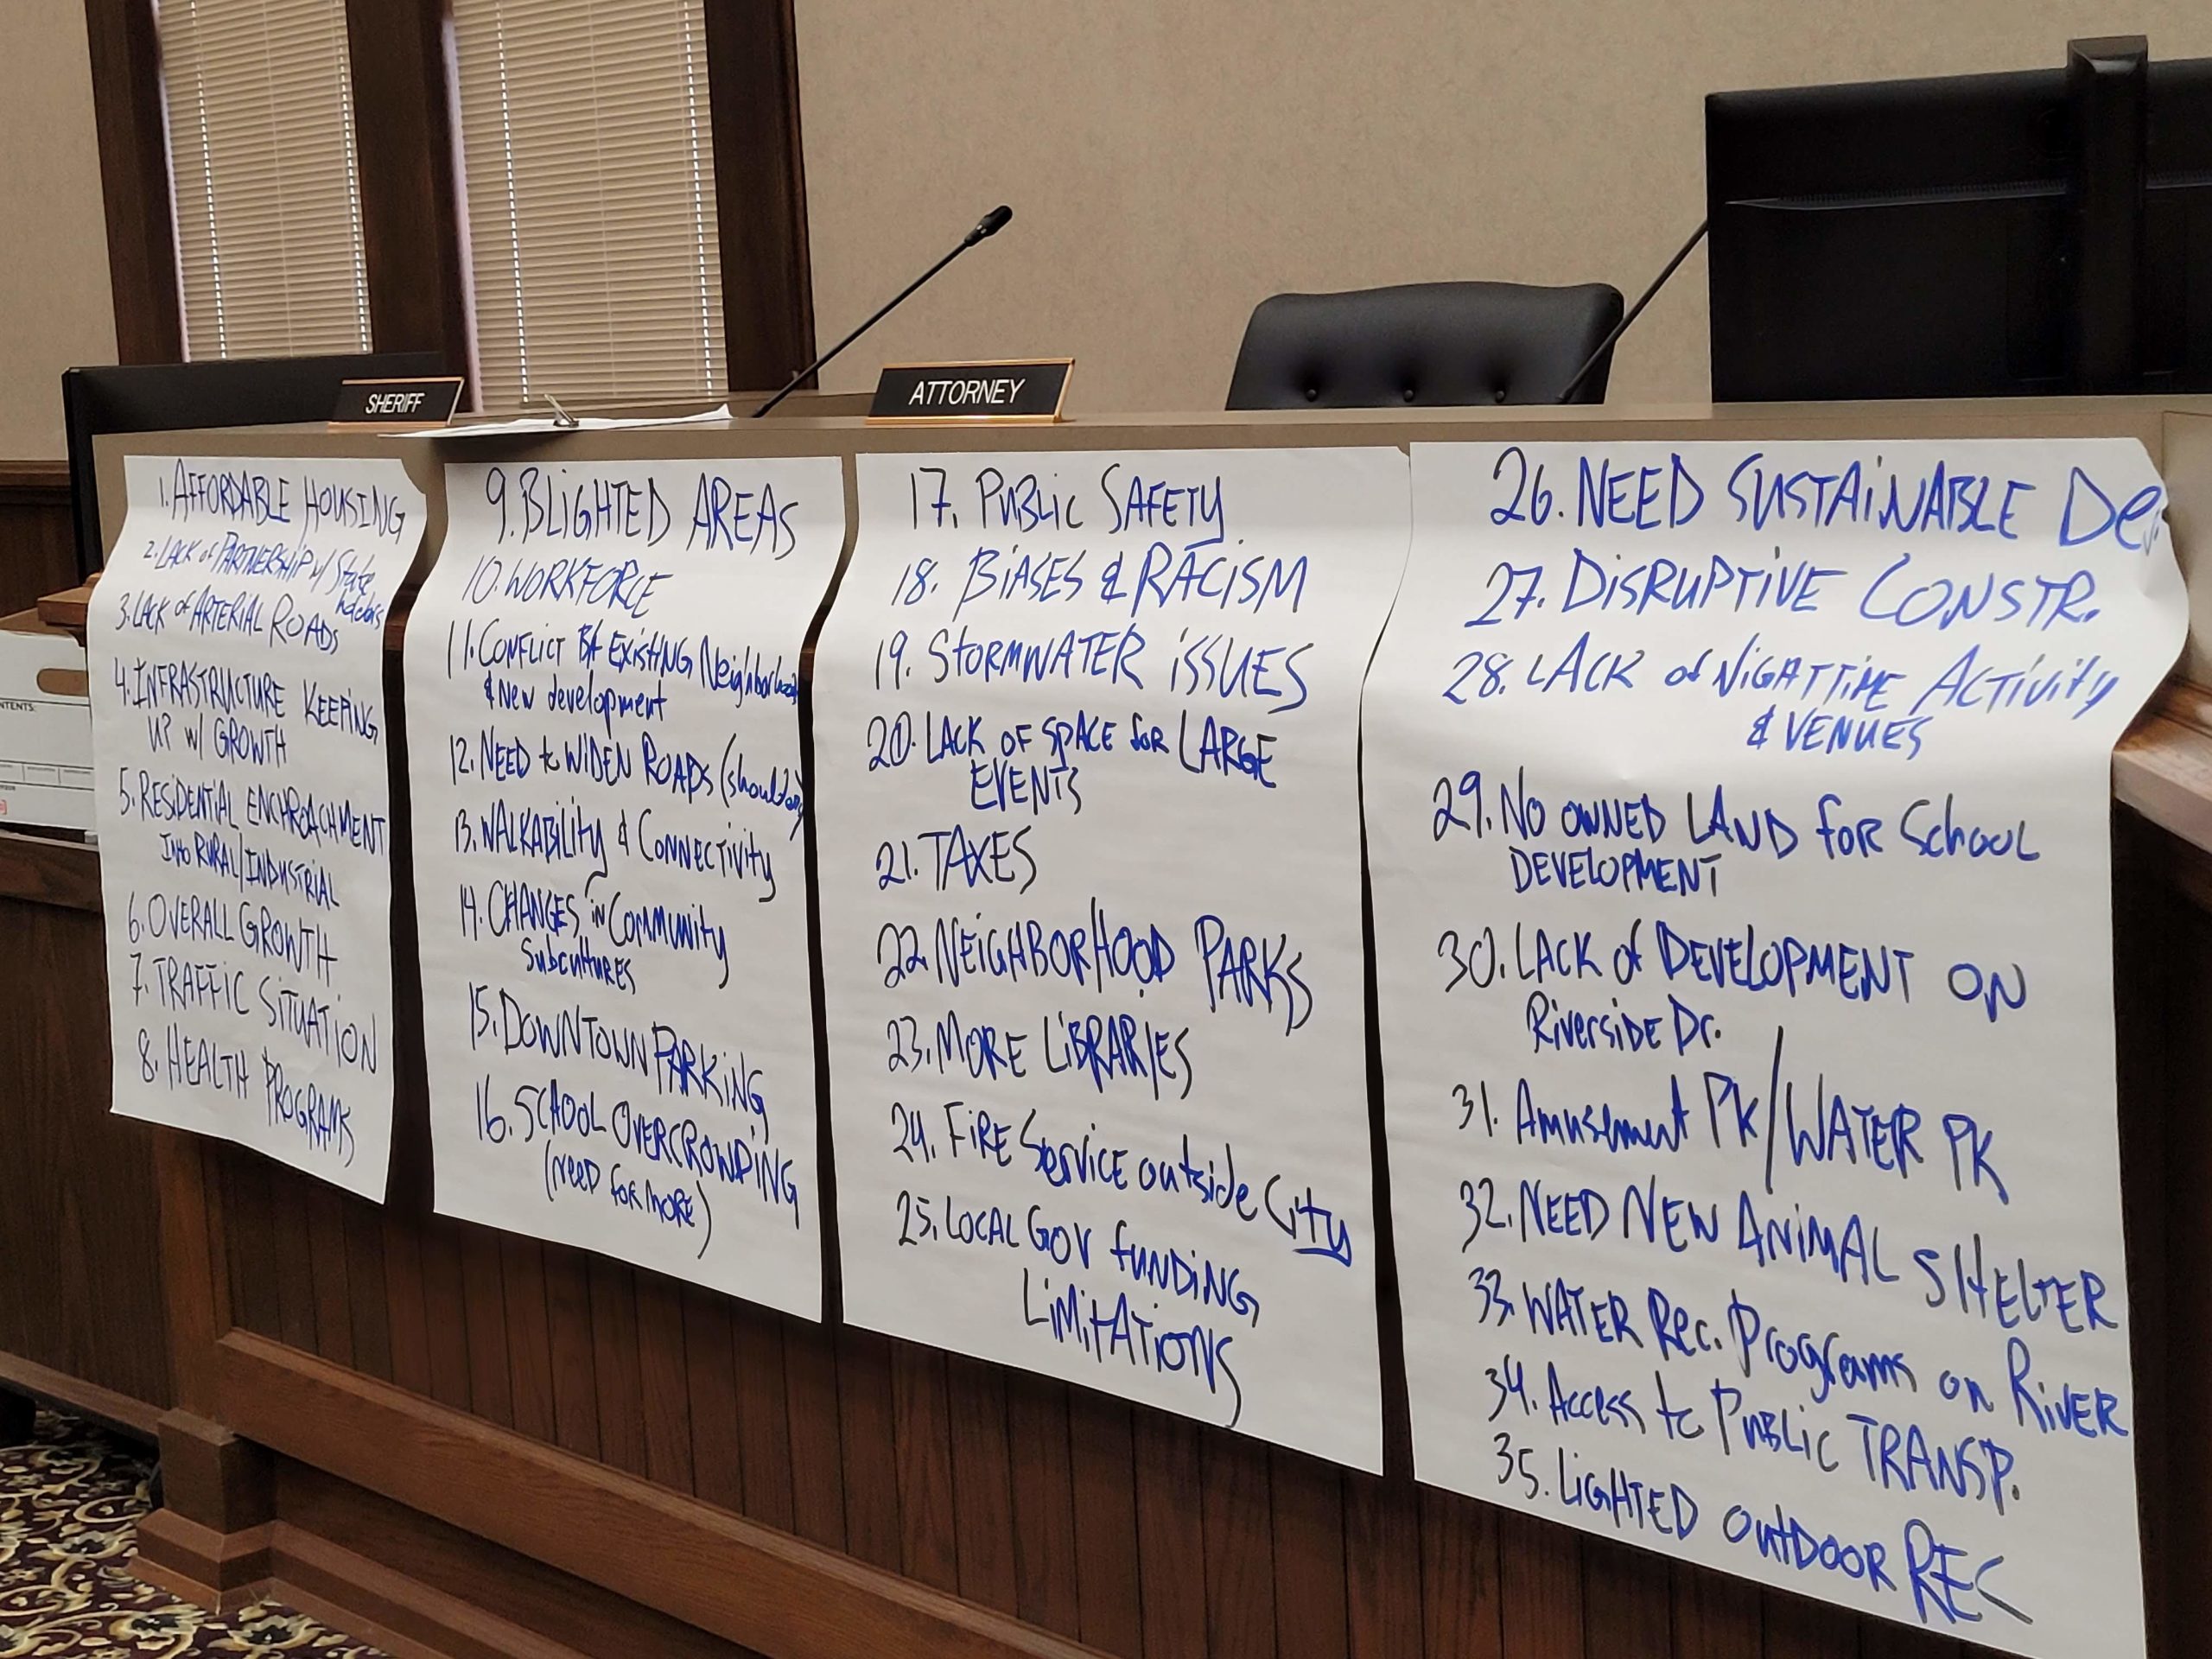 SHERIFF
ATTORNEY
1. AFFORDABLE HOUSING
2. LACK of PARTNERSHIP w/ State
holders
3. LACK of ARTERIAL ROADS
4. INFRASTRUCTURE KEEPING
UP w/ GROWTH
5. RESIDENTIAL ENCHROACHMENT
INto RURAL/INDUSTRIAL
6. OVERALL GROWTH
7. TRAFFIC SITUATION
8. HEALTH PROGRAMS
9. BLIGHTED AREAS
10. WORKFORCE
11. CONFLICT Bt EXISTING Neighborhoods
& New development
12. NEED to WIDEN ROADS (shoulders)
13. WALKABILITY & CONNECTIVITY
14. CHANGES in Community
Subcultures
15. DOWNTOWN PARKING
16. SCHOOL OVERCROWDING
(need for more)
17. PUBLIC SAFETY
18. BIASES & RACISM
19. STORMWATER ISSUES
20. LACK OF SPACE for LARGE
EVENTS
21. TAXES
22. NEIGHBORHOOD PARKS
23. MORE LIBRARIES
24. FIRE Service outside City
25. LOCAL GOV fUNDING
LIMITATIONS
26. NEED SUSTAINABLE Dev.
27. DISRUPTIVE CONSTR.
28. LACK of NIGHTTIME ACTIVITY
& VENUES
29. NO OWNED LAND for School
DEVELOPMENT
30. LACK of DEVELOPMENT ON
Riverside Dr.
31. Amusement PK/WATER PK
32. NEED NEW ANIMAL SHELTER
33. WATER Rec. Programs on RIVER
34. Access to PUBLIC TRANSP.
35. LIGHTED OUTDOOR REC